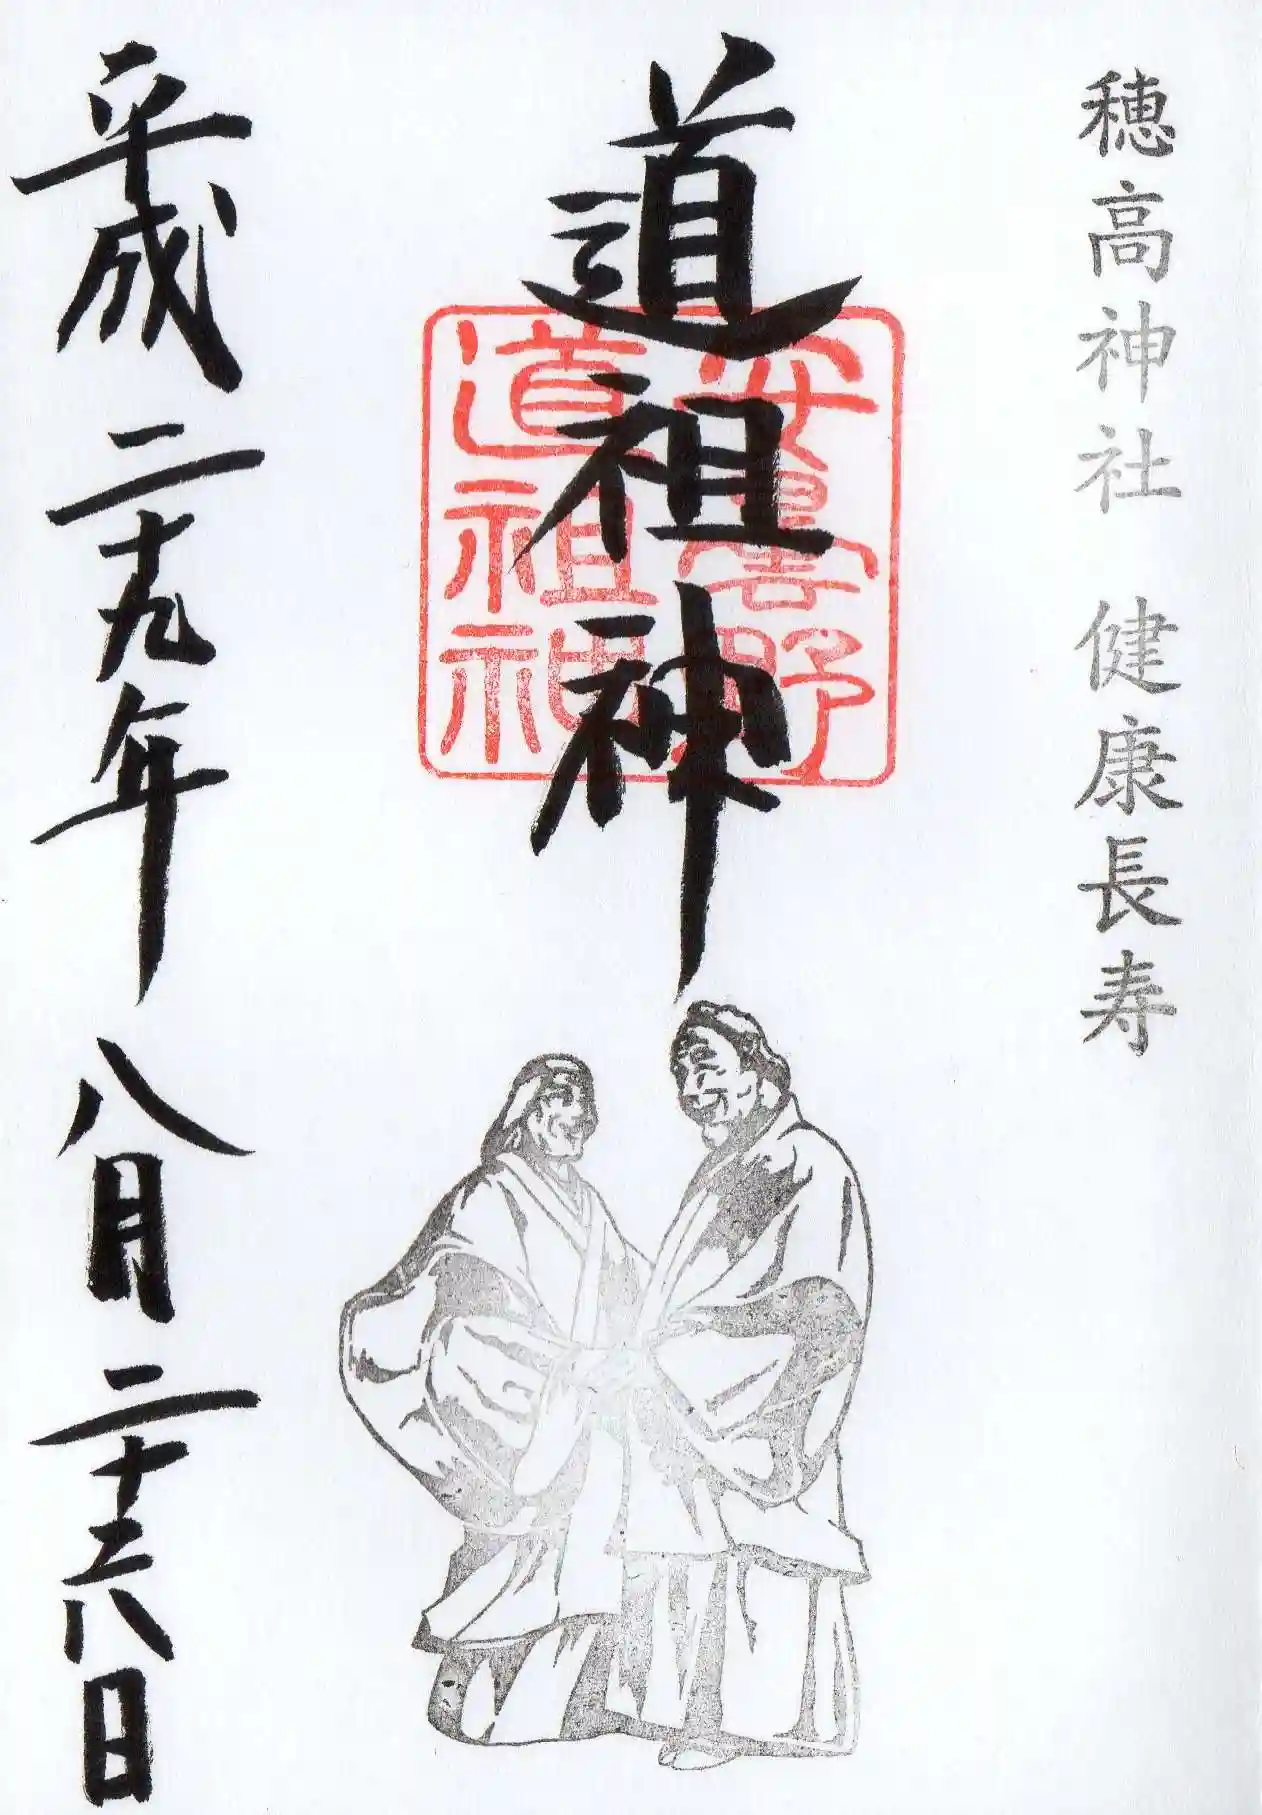 穂高神社 健康長寿
道祖神
安曇野
道祖神
平成二十九年 八月 二十六日